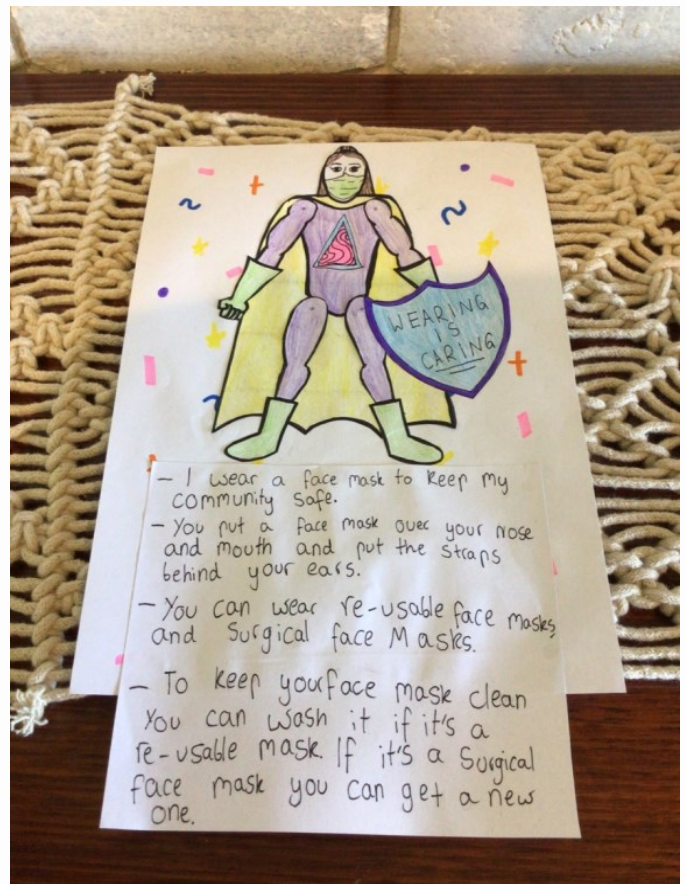 WEARING
IS
CARING
- I wear a face mask to keep my
community safe.
- You put a face mask over your nose
and mouth and put the straps
behind your ears.
- You can wear re-usable face masks,
and Surgical face Masks.
- To keep your face mask clean
You can wash it if it's a
re-usable mask. If it's a Surgical
face mask you can get a new
one.